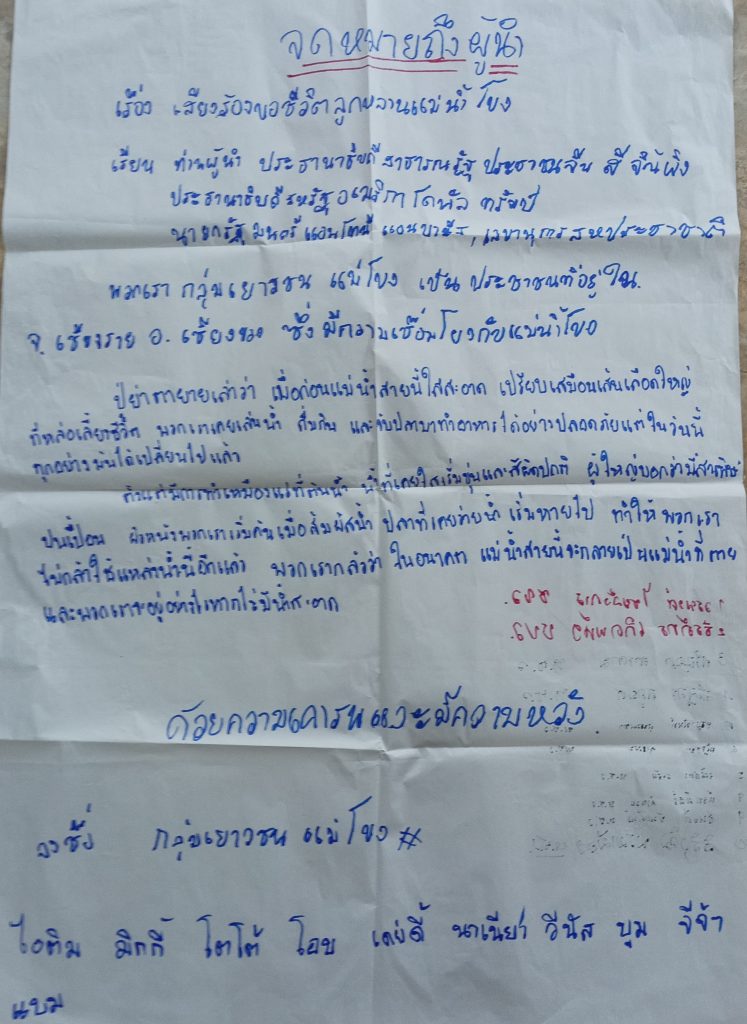 จดหมายถึงผู้นำ
เรื่อง เสียงร้องขอชีวิตลูกหลานแม่น้ำโขง
เรียน ท่านผู้นำ ประธานาธิบดีสาธารณรัฐประชาชนจีน สี จิ้นผิง
ประธานาธิบดีสหรัฐอเมริกา โดนัล ทรัมป์
นายกรัฐมนตรีแอนโตนี แอนบาเนีส, เลขานุการสหประชาชาติ
พวกเรา กลุ่มเยาวชน แม่โขง เป็น ประชาชนที่อยู่ใน
จ.เชียงราย อ.เชียงของ ซึ่งมีความเชื่อมโยงกับแม่น้ำโขง
ปู่ย่าตายายเล่าว่า เมื่อก่อนแม่น้ำสายนี้ใสสะอาด เปรียบเสมือนเส้นเลือดใหญ่
ที่หล่อเลี้ยงชีวิต พวกเราเคยเล่นน้ำ ดื่มกิน และจับปลามาทำอาหารได้อย่างปลอดภัยแต่ในวันนี้
ทุกอย่างมันได้เปลี่ยนไปแล้ว
ตั้งแต่มีการทำเหมืองแร่ที่ต้นน้ำ น้ำที่เคยใสเริ่มขุ่นและสีผิดปกติ ผู้ใหญ่บอกว่ามีสารพิษ
ปนเปื้อน ผิวหนังพวกเราเริ่มคันเมื่อสัมผัสน้ำ ปลาที่เคยว่ายน้ำ เริ่มหายไป ทำให้พวกเรา
ไม่กล้าใช้แหล่งน้ำนี้อีกแล้ว พวกเรากลัวว่า ในอนาคต แม่น้ำสายนี้จะกลายเป็นแม่น้ำที่ตาย
และพวกเราจะอยู่อย่างไรหากไร้มีน้ำสะอาด
ด้วยความเคารพและมีความหวัง
ลงชื่อ กลุ่มเยาวชน แม่โขง #
ไอติม มิกกี้ โตโต้ โอบ เดย์ดี้ นาเนียร์ วีนัส บูม จีจ้า
แบม